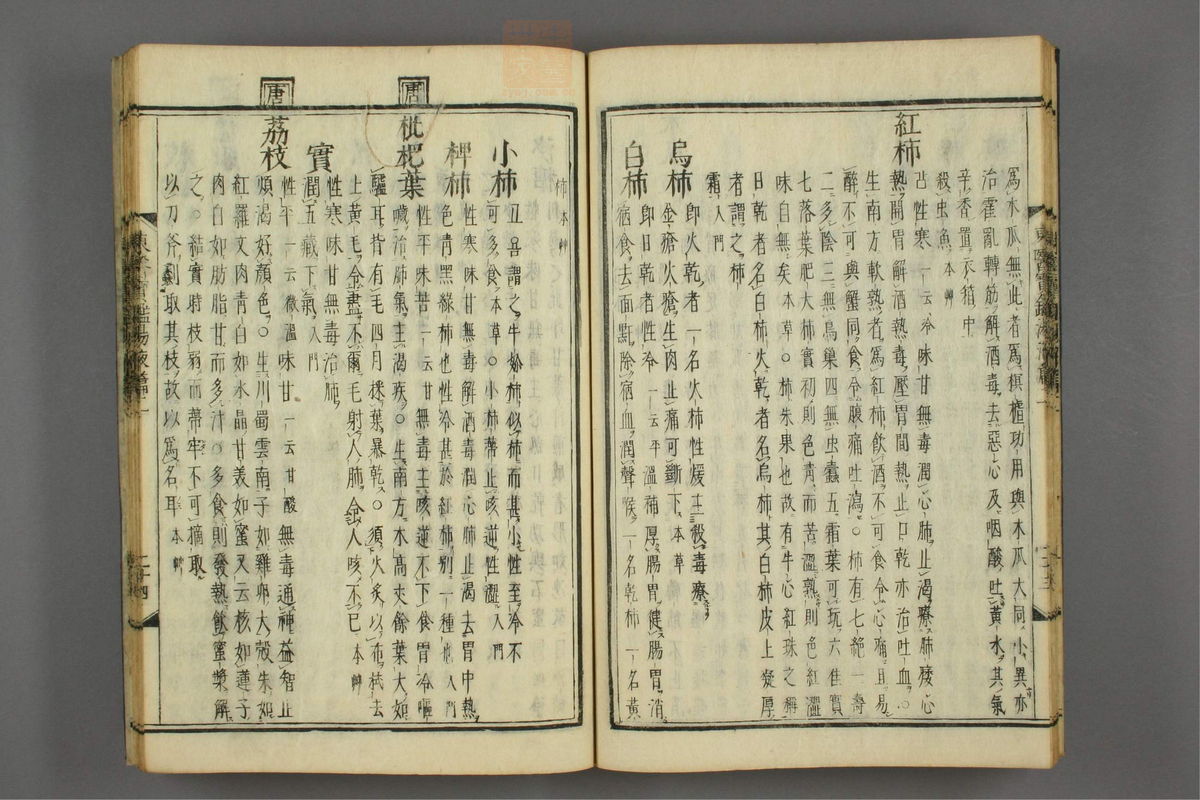 爲木瓜無此者爲榠樝功用與木瓜大同小異亦
治霍亂轉筋解酒毒去惡心及咽酸吐黃水其氣
辛香置衣箱中
殺虫魚本艸
紅柿
性寒一云冷味甘無毒潤心肺止渴療肺痿心
熱開胃解酒熱毒壓胃間熱止口乾亦治吐血○
生南方軟熟者爲紅柿飲酒不可食令心痛且易
醉不可與蟹同食令腹痛吐瀉○柿有七絕一壽
二多陰三無鳥巢四無虫蠹五霜葉可玩六佳實
七落葉肥大柿實初則色靑而苦澁熟則色紅澁
味自無矣本草○柿朱果也故有牛心紅珠之稱
日乾者名白柿火乾者名烏柿其白柿皮上凝厚
者謂之柿
霜入門
烏柿
卽火乾者一名火柿性煖主殺毒療
金瘡火瘡生肉止痛可斷下本草
白柿
卽日乾者性冷一云平溫補厚腸胃健腸胃消
宿食去面䵟除宿血潤聲喉一名乾柿一名黃
柿本艸
小柿
丑音謂之牛妳柿似柿而甚小性至冷不
可多食本草○小柿蔕止咳逆性澁入門
椑柿
性寒味甘無毒解酒毒潤心肺止渴去胃中熱
色靑黑綠柿也性冷甚於紅柿別一種也入門
唐
枇杷葉
性平味苦一云甘無毒主咳逆不下食胃冷嘔
噦治肺氣主渴疾○生南方木高丈餘葉大如
驢耳背有毛四月採葉暴乾○須火炙以布拭去
上黃毛令盡不爾毛射人肺令人咳不已本艸
實
性寒味甘無毒治肺
潤五藏下氣入門
唐
荔枝
性平一云微溫味甘一云甘酸無毒通神益智止
煩渴好顏色○生川蜀雲南子如雞卵大殼朱如
紅羅文肉靑白如水晶甘美如蜜又云核如蓮子
肉白如肪脂甘而多汁○多食則發熱飮蜜漿解
之○結實時枝弱而蔕牢不可摘取
以刀斧剝取其枝故以爲名耳本艸